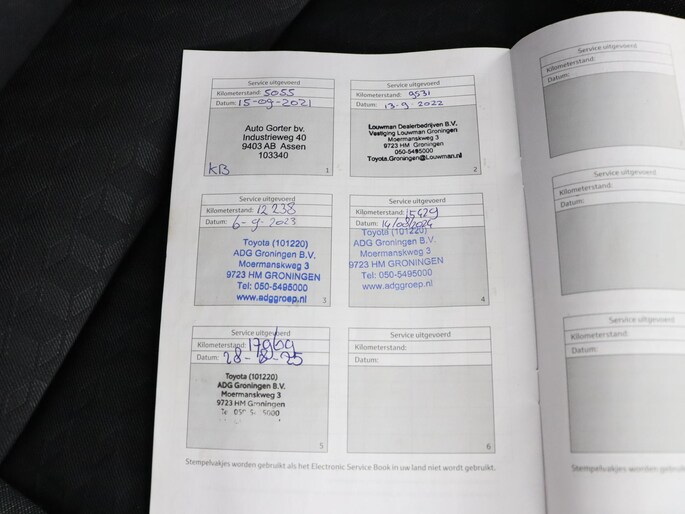 Service uitgevoerd
Kilometerstand: 5055
Datum: 15-09-2021
Auto Gorter bv.
Industrieweg 40
9403 AB Assen
103340
KB
1
Service uitgevoerd
Kilometerstand: 9531
Datum: 13-9-2022
Louwman Dealerbedrijven B.V.
Vestiging Louwman Groningen
Moermanskweg 3
9723 HM Groningen
050-5495000
Toyota.Groningen@Louwman.nl
2
Service uitgevoerd
Kilometerstand: 12238
Datum: 6-9-2023
Toyota (101220)
ADG Groningen B.V.
Moermanskweg 3
9723 HM GRONINGEN
Tel: 050-5495000
www.adggroep.nl
3
Service uitgevoerd
Kilometerstand: 15429
Datum: 14/08/2024
Toyota (101220)
ADG Groningen B.V.
Moermanskweg 3
9723 HM GRONINGEN
Tel: 050-5495000
www.adggroep.nl
4
Service uitgevoerd
Kilometerstand: 17969
Datum: 28-8-25
Toyota (101220)
ADG Groningen B.V.
Moermanskweg 3
9723 HM Groningen
5
Service uitgevoerd
Kilometerstand:
Datum:
6
Stempelvakjes worden gebruikt als het Electronic Service Book in uw land niet wordt gebruikt.
Service uitgevoerd
Kilometerstand:
Datum:
Service uitgevoerd
Kilometerstand:
Datum:
Service uitgevoerd
Kilometerstand:
Datum:
Stempelvakjes worden gebruikt als